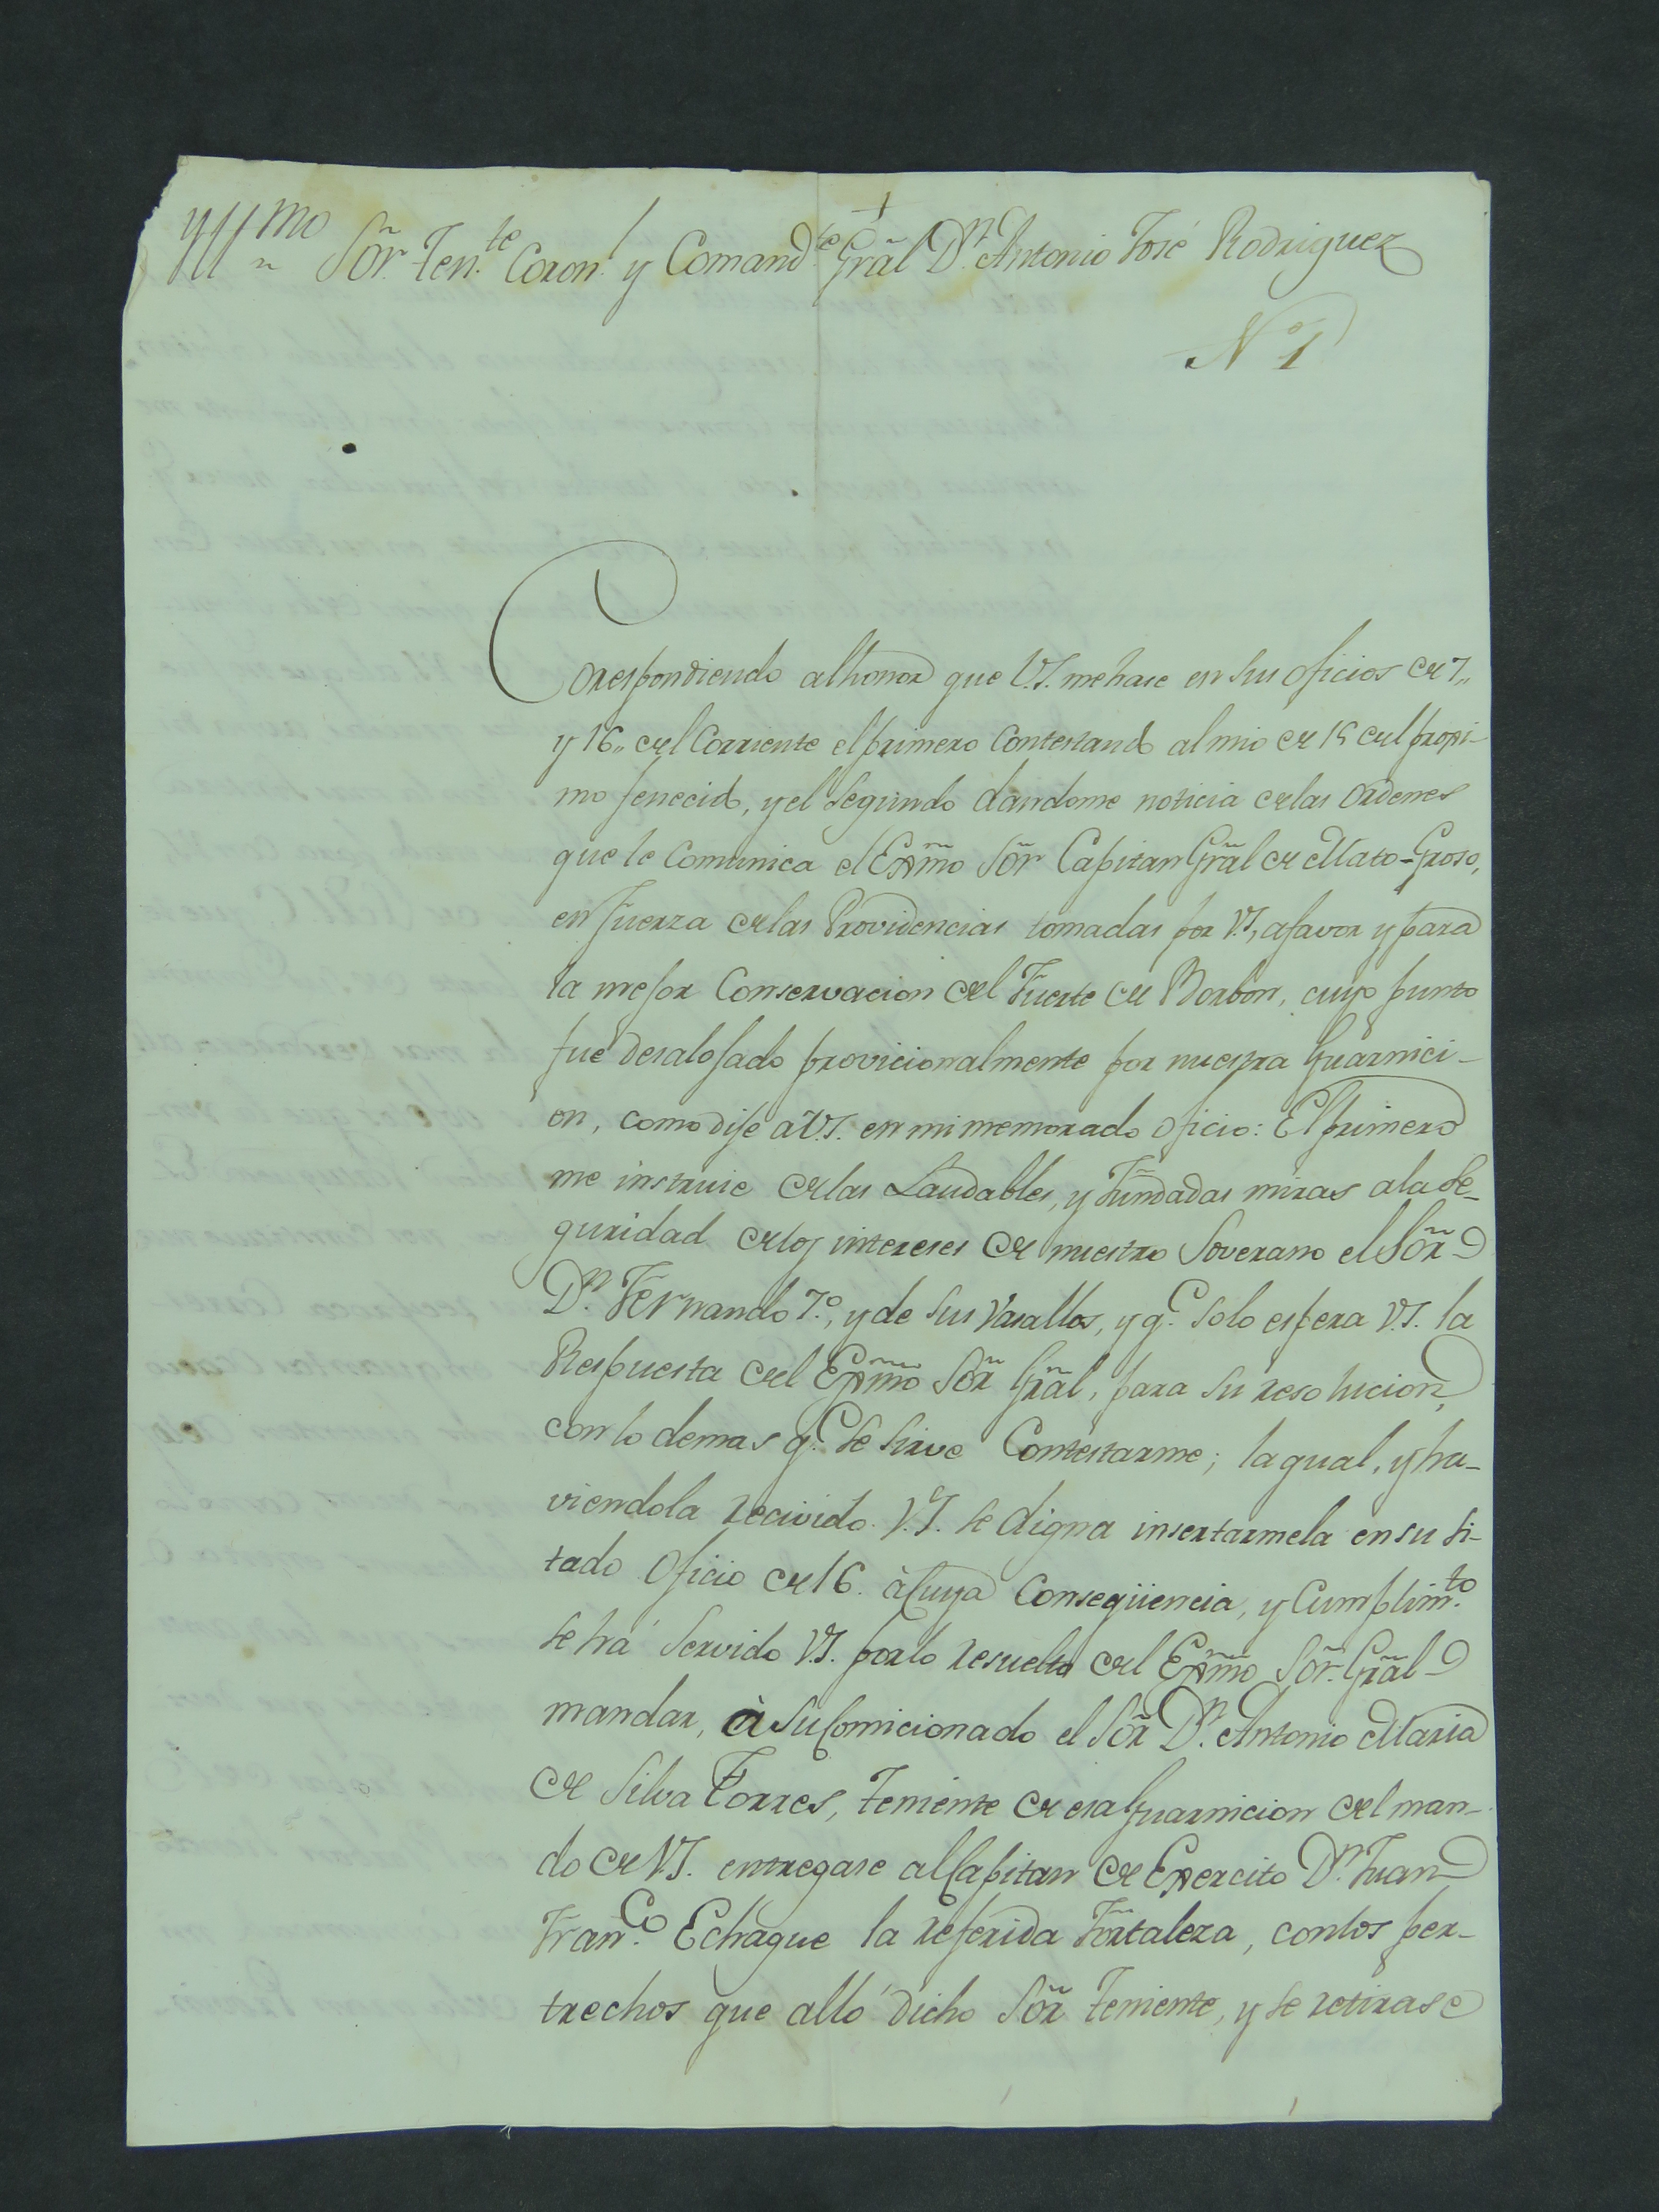 Yllmo Sõr. Ten.te Coron.l y Comand.te Grãl D.n Antonio José Rodriguez
Nº 1
Correspondiendo al honor que V.S. me hase en sus oficios de 7,,
y 16,, del Corriente el primero Contestando al mio de 15 del proxi-
mo fenecido, y el Segundo dandome noticia de las Ordenes
que le Comunica el Exmõ Sõr Capitan Grãl de Mato-Groso,
en Fuerza de las Providencias tomadas por V.S, a favor y para
la mejor Conservacion del Fuerte de Borbon, cuyo punto
fué desalojado provicionalmente por nuestra Guarnici-
on, como dije a V.S. en mi memorado oficio: El primero
me instruie de las Laudables, y Fundadas miras a la Se-
guridad de los intereses de nuestro Soverano el Sõr
D.n Fernando 7.º, y de Sus Vasallos, y q.e solo espera V.S. la
Respuesta del Exmõ Sõr Grãl, para su resolucion,
con lo demas q.e Se Sirve Contestarme; la qual, y ha-
viendola recivido V.S. se digna insertarmela en su Si-
tado Oficio de 16. à Cuya Conseqüencia, y Cumplim.to
se há Servido V.S. por lo resuelto del Exmõ Sõr. Grãl
mandar, à Su Comicionado el Sõr D.n Antonio Maria
de Silva Torres, Teniente de esa Guarnicion del man-
do de V.S. entregase al Capitan de Exercito D.n Juan
Fran.co Echague la referida Fortaleza, con los per-
trechos que alló dicho Sõr Teniente, y se retirase